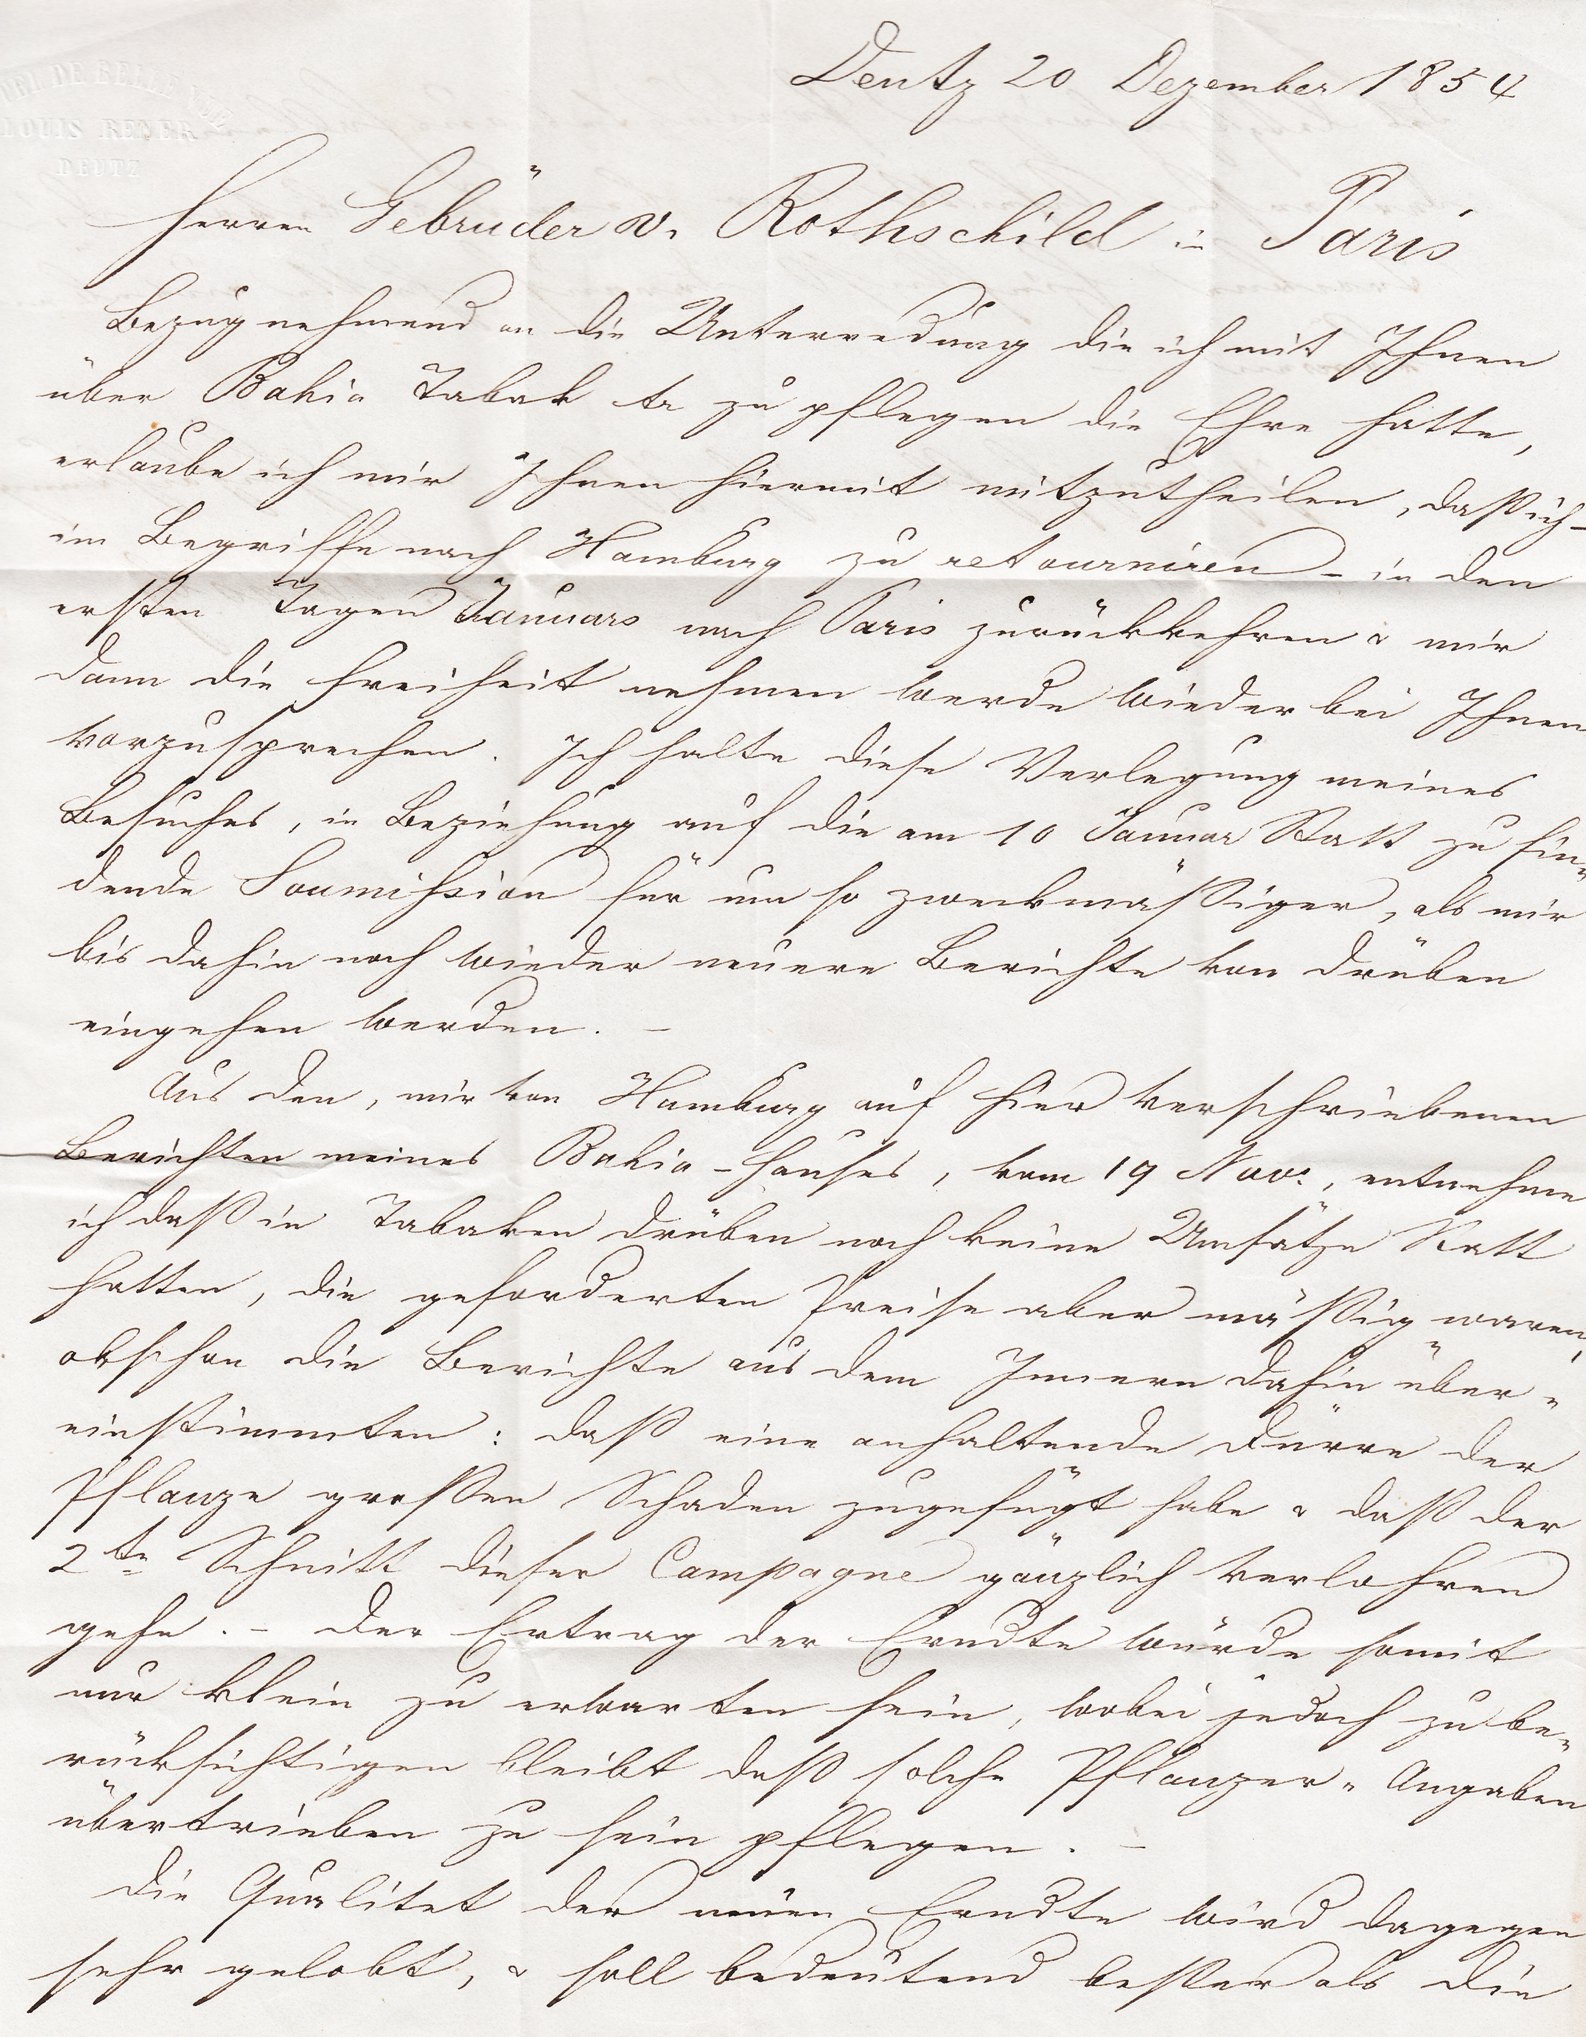 HOTEL DE BELLEVUE
LOUIS REDER
DEUTZ
Deutz 20 Dezember 1854
Herren Gebrüder v. Rothschild in Paris
Bezug nehmend an die Unterredung die ich mit Ihnen
über Bahia Taback zu pflegen die Ehre hatte,
erlaube ich mir Ihnen hiermit mitzutheilen, daß ich -
im Begriffe nach Hamburg zu retourniren - in den
ersten Tagen Januars nach Paris zurückkehren & mir
dann die Freiheit nehmen werde wieder bei Ihnen
vorzusprechen. Ich halte diese Verlegung meines
Besuches, in Beziehung auf die am 10 Januar Statt zu fin=
dende Soumission für um so zweckmäßiger, als mir
bis dahin noch wieder neuere Berichte von drüben
eingehen werden. -
Aus den, mir von Hamburg auf hier verschriebenen
Berichten meines Bahia-Hauses, vom 19 Nov., entnehme
ich daß in Tabaken drüben noch keine Umsätze Statt
hatten, die geforderten Preise aber mäßig waren,
obschon die Berichte aus dem Innern dahin über=
einstimmten: daß eine anhaltende Dürre der
Pflanze großen Schaden zugefügt habe & daß der
2te Schnitt dieser Campagne gänzlich verlohren
gehe. - Der Ertrag der Erndte würde somit
nur klein zu erwarten sein, wobei jedoch zu be=
rücksichtigen bleibt daß solche Pflanzer=Angaben
übertrieben zu sein pflegen. -
Die Qualitet der neuen Erndte wird dagegen
sehr gelobt, & soll bedeutend besser als die